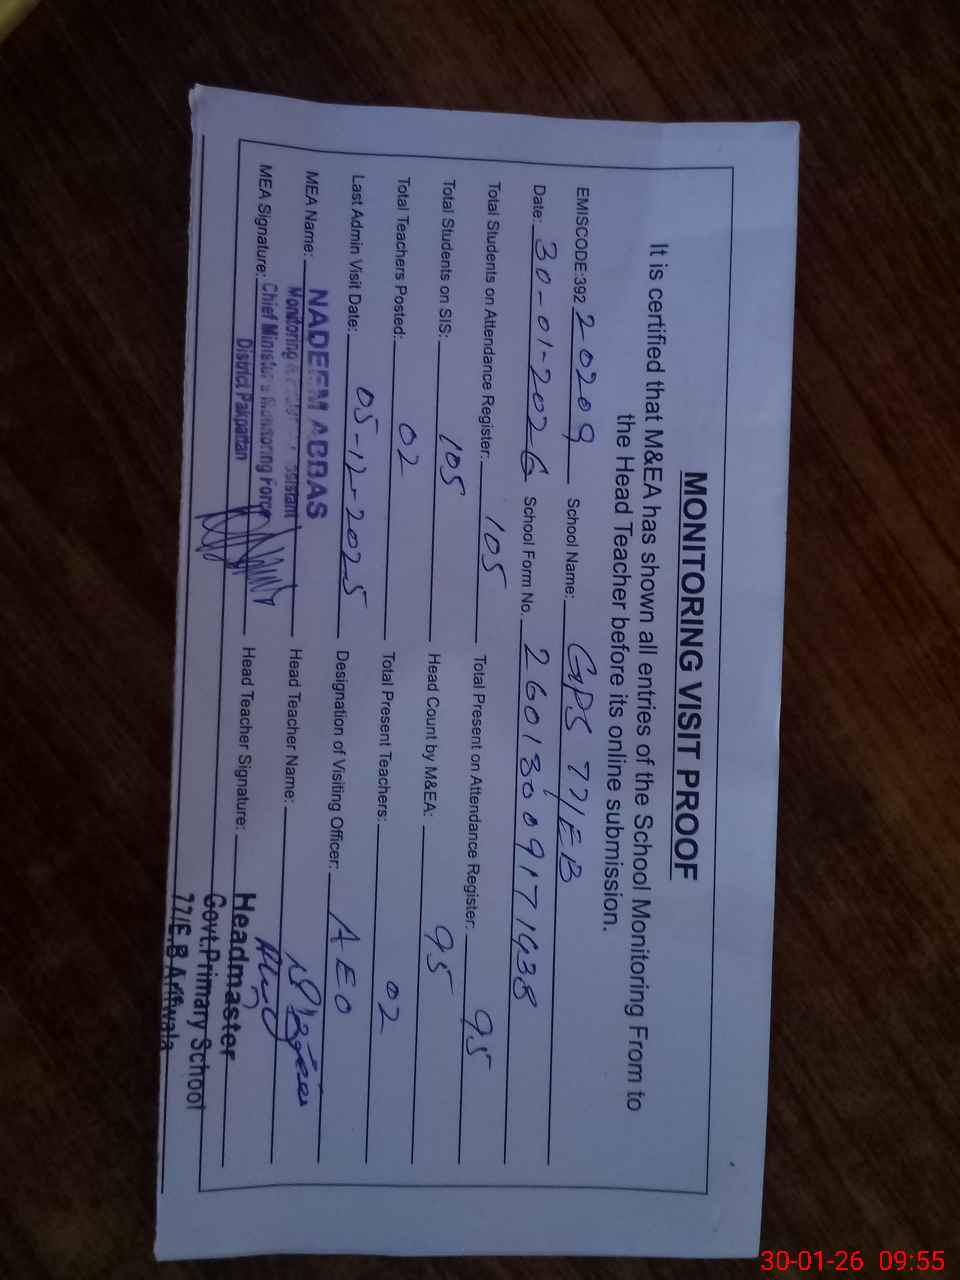 MONITORING VISIT PROOF
It is certified that M&EA has shown all entries of the School Monitoring From to
the Head Teacher before its online submission.
EMISCODE:392 20209 School Name: GPS 77/EB
Date: 30-01-2026 School Form No. 26013009171438
Total Students on Attendance Register: 105 Total Present on Attendance Register: 95
Total Students on SIS: 105 Head Count by M&EA: 95
Total Teachers Posted: 02 Total Present Teachers: 02
Last Admin Visit Date: 05-12-2025 Designation of Visiting Officer: AEO
MEA Name: NADEEM ABBAS Head Teacher Name:
Monitoring Assistant
MEA Signature: Chief Minister's Monitoring Force Head Teacher Signature:
District Pakpattan
Headmaster
Govt.Primary School
77/E.B Arifwala
30-01-26 09:55